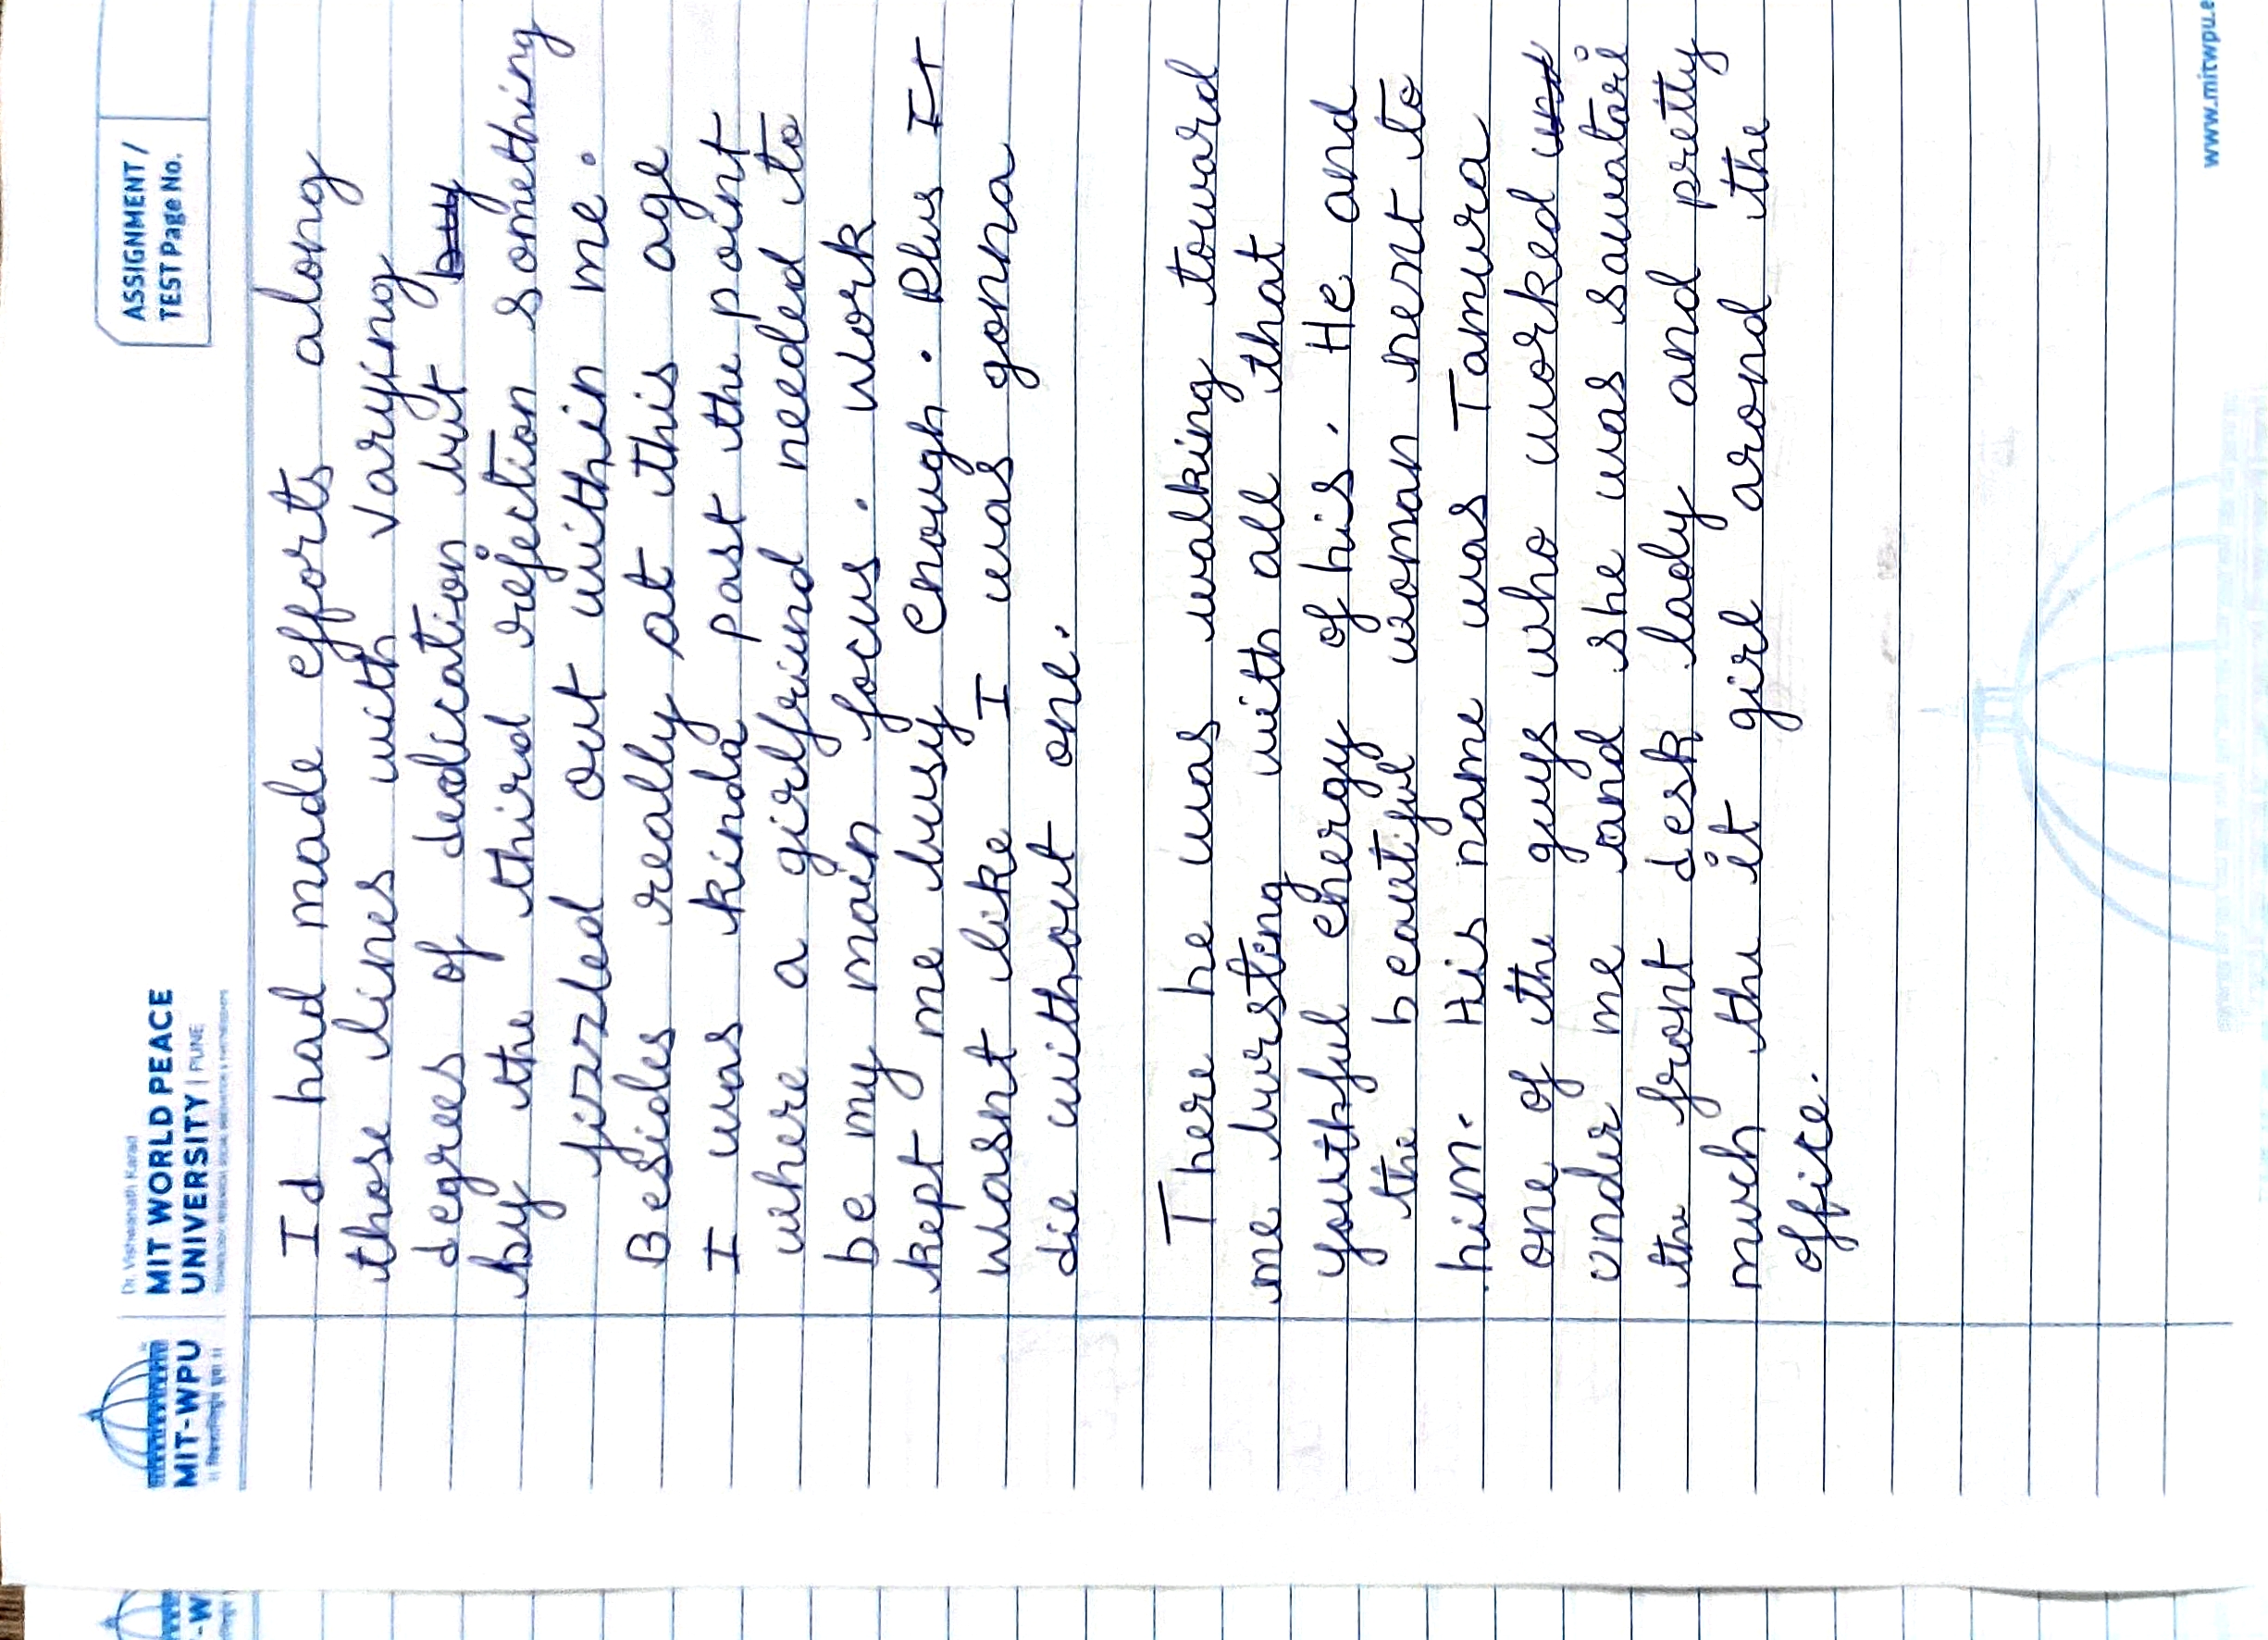 MIT-WPU
Dr. Vishwanath Karad
MIT WORLD PEACE
UNIVERSITY | PUNE
TECHNOLOGY, RESEARCH, SOCIAL INNOVATION & PARTNERSHIPS
ASSIGNMENT /
TEST Page No.
Id had made efforts along
those lines with varying
degrees of dedication but by
by the third rejection something
fizzled out within me.
Besides really at this age
I was kinda past the point
where a girlfriend needed to
be my main focus. Work
kept me busy enough. Plus It
wasnt like I was gonna
die without one.
There he was walking toward
me bursting with all that
youthful energy of his. He and
the beautiful woman next to
him. His name was Tamura
one of the guys who worked und
under me and she was sawatari
the front desk lady and pretty
much the it girl arond the
office.
www.mitwpu.e